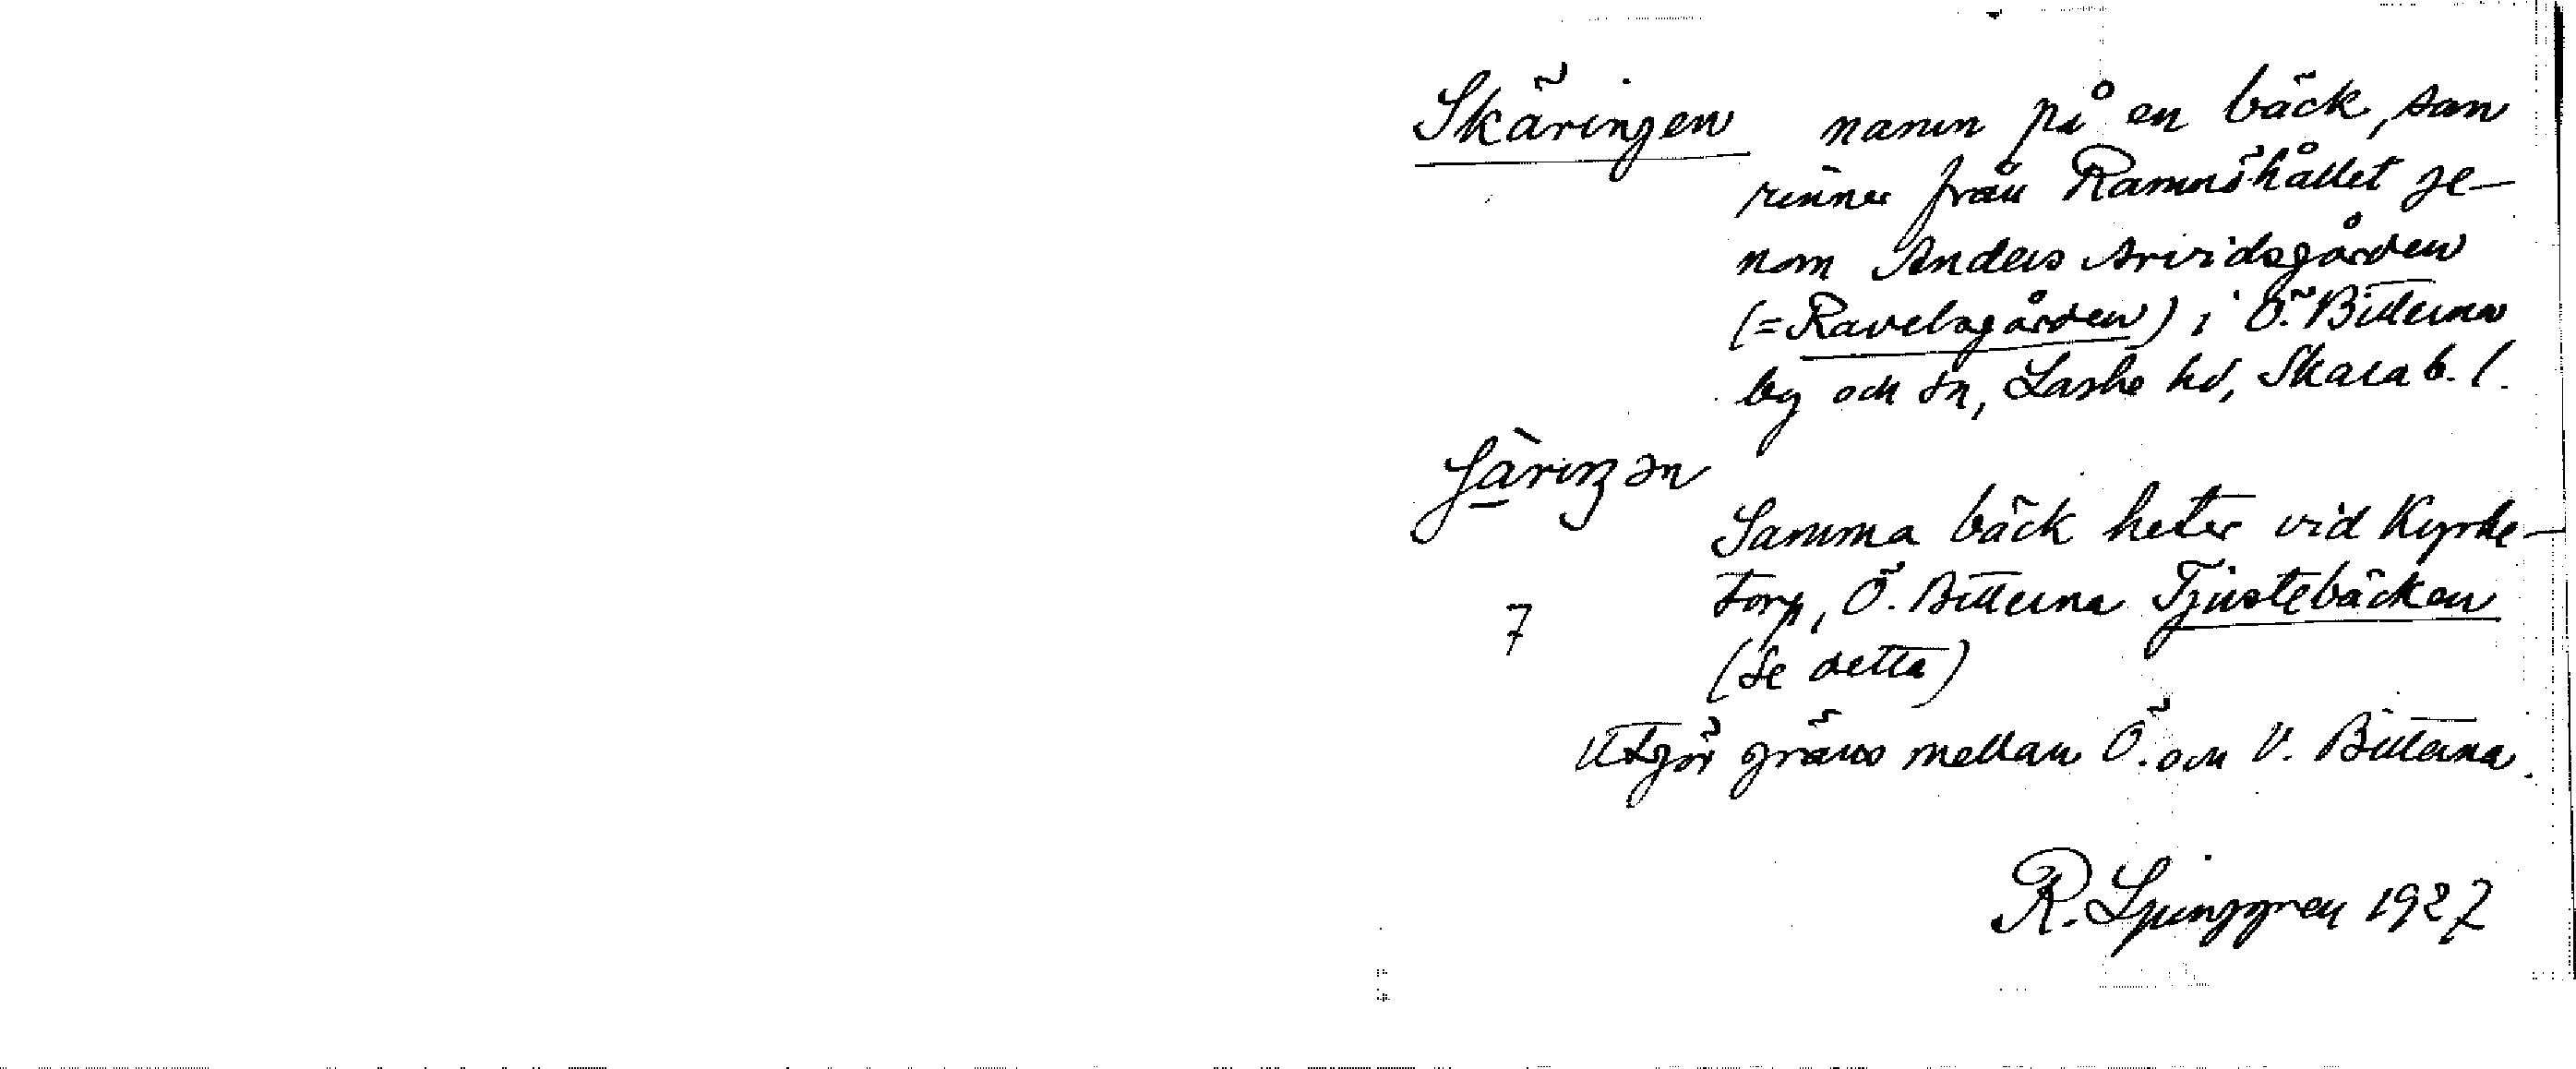 Skäringen namn på en bäck, som
rinner från Ramnöhållet ge-
nom Anders Arvidsgården
(=Ravelsgården) i Ö. Bitterna
by och sn, Laske hd, Skarab. l.
ʃàriŋən
Samma bäck heter vid Kyrke-
torp, Ö. Bitterna Tjustebäcken
7
(se detta)
Utgör gräns mellan Ö. och V. Bitterna.
R. Ljunggren 1927